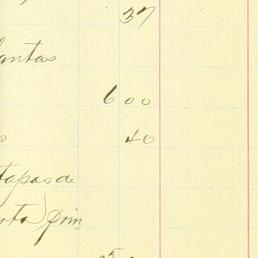 37
antas
6 00
o 40
tapas de
rto) prin
5